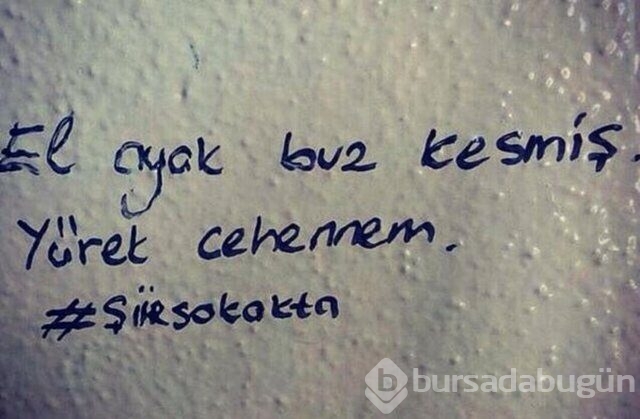 El ayak buz kesmiş.
Yürek cehennem.
#Şiirsokakta
bursadabugün